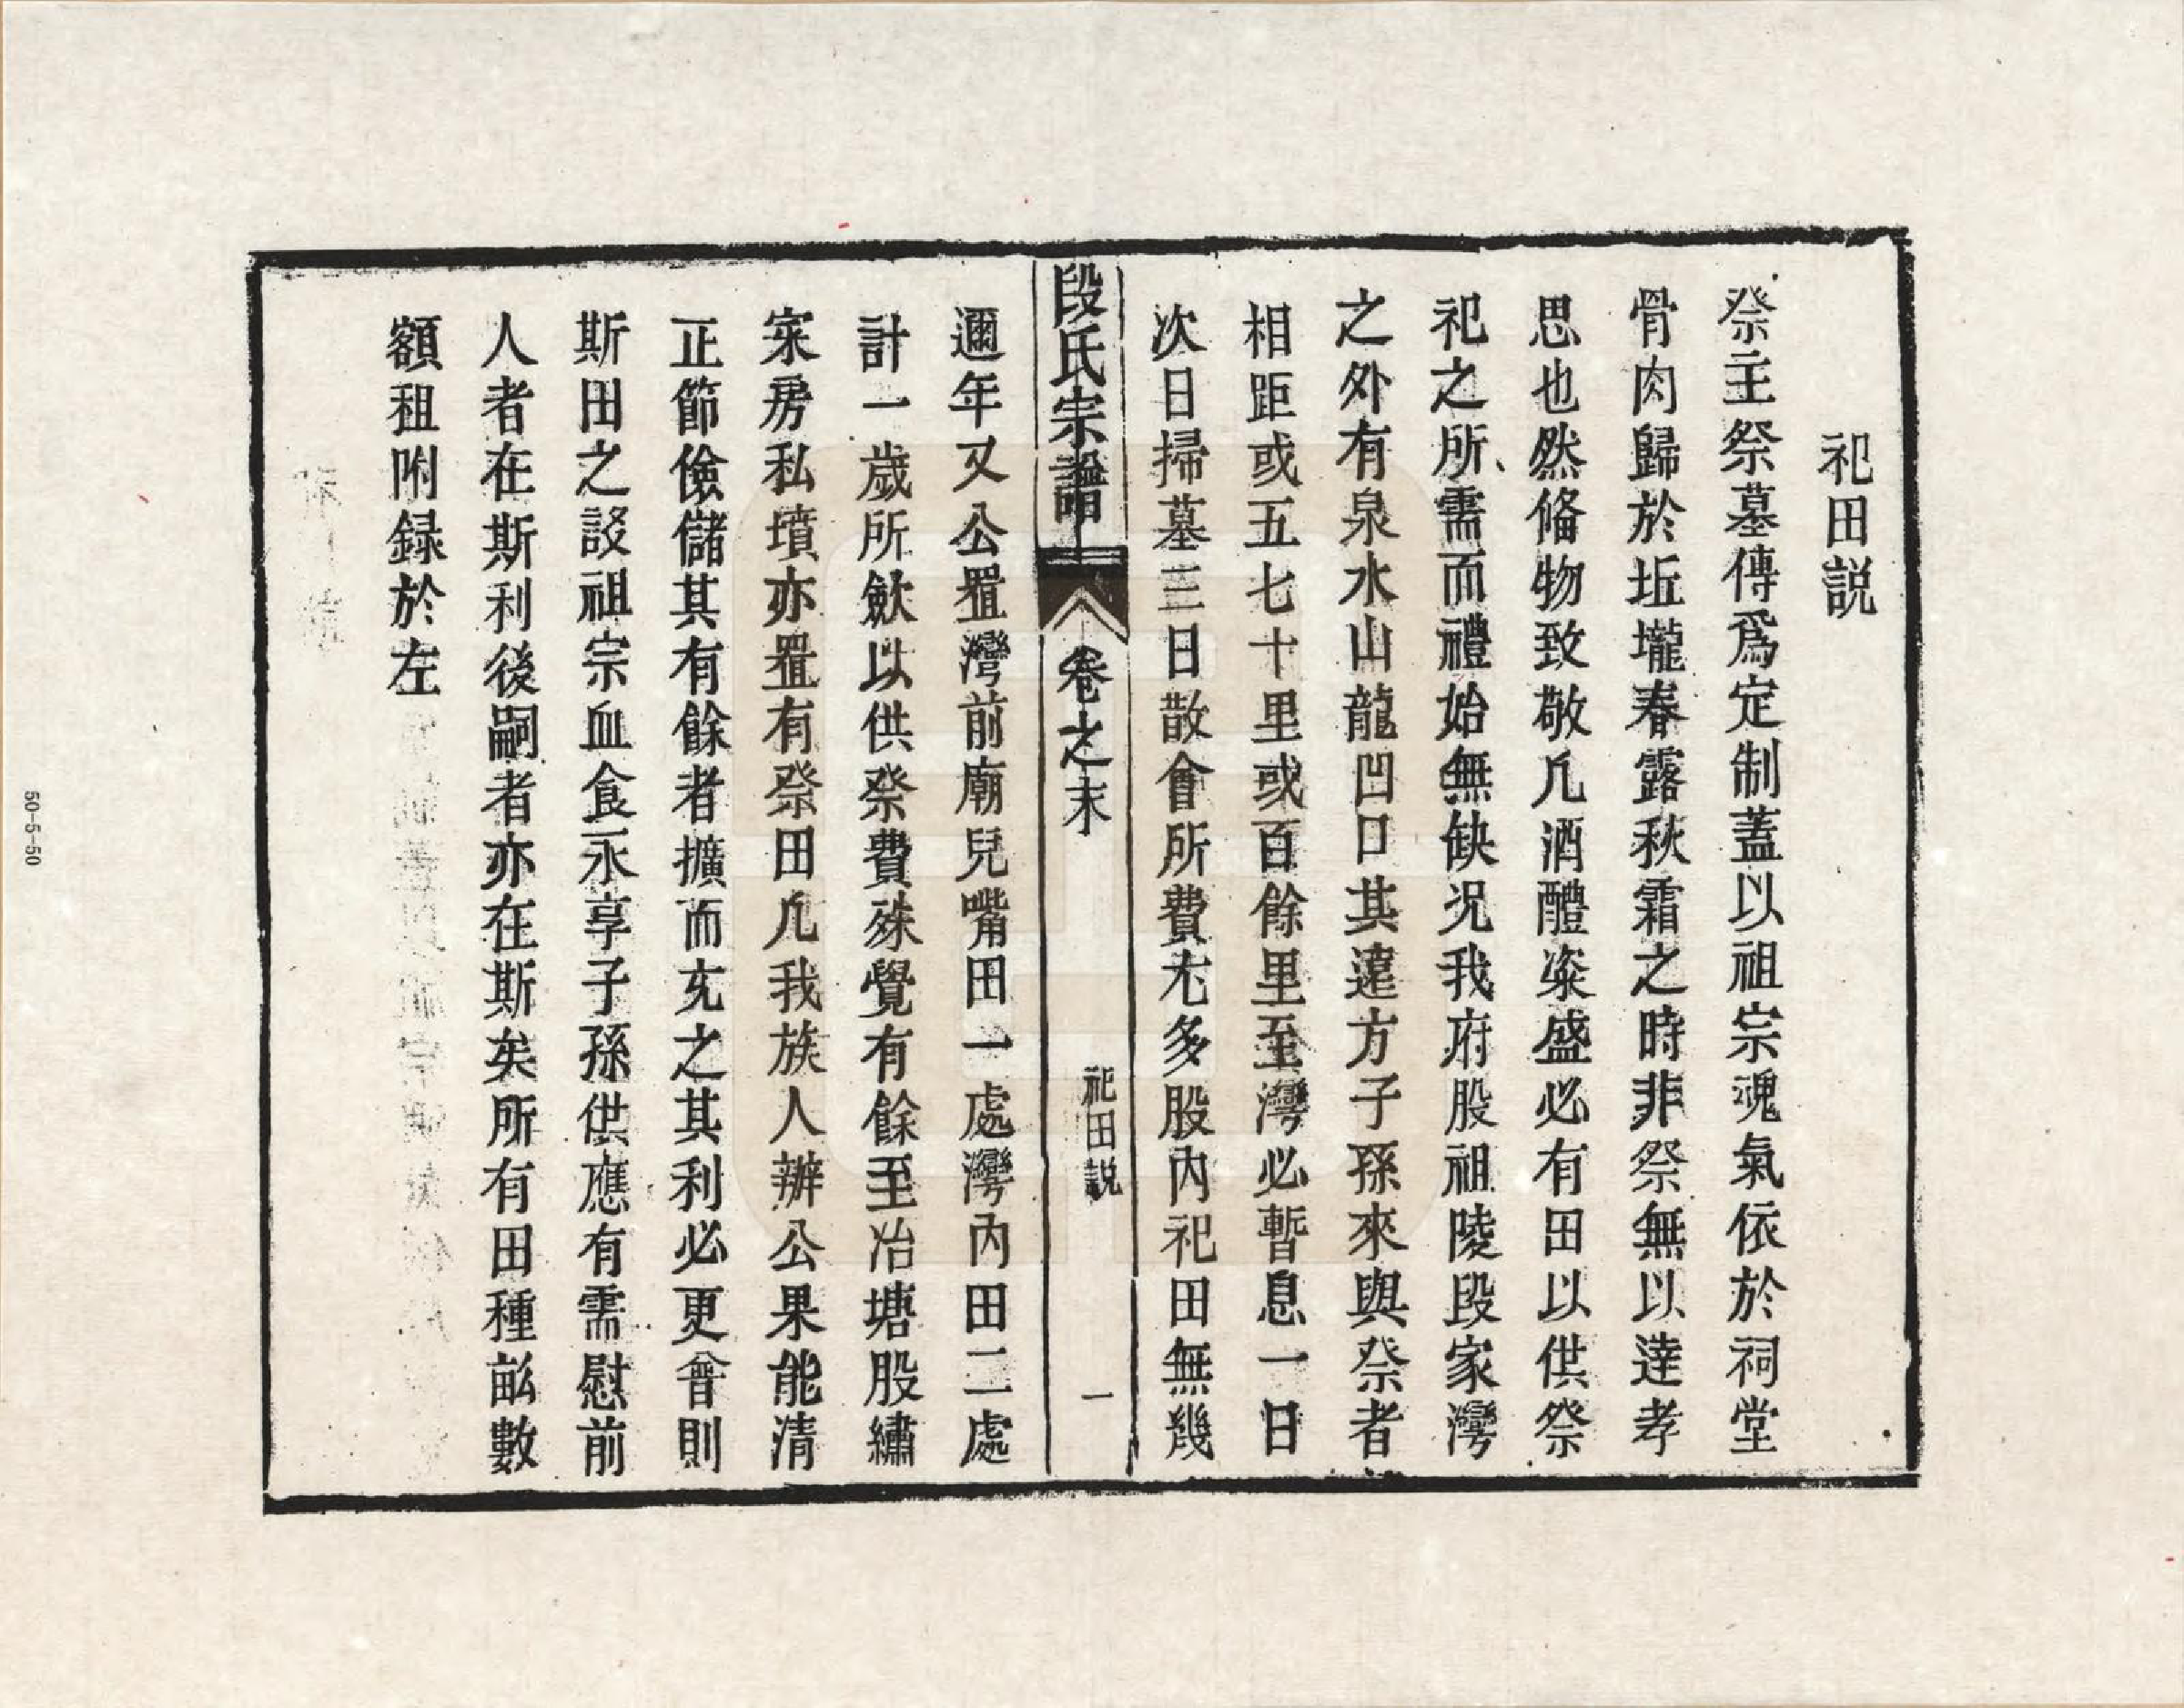 祀田説
祭主祭墓傳爲定制蓋以祖宗魂氣依於祠堂
骨肉歸於坵壠春露秋霜之時非祭無以達孝
思也然俻物致敬凡酒醴粢盛必有田以供祭
祀之所需而禮始無缺况我府股祖陵段家灣
之外有泉水山龍凹口其遠方子孫來與祭者
相距或五七十里或百餘里至灣必暫息一日
次日掃墓三日散會所費尤多股内祀田無幾
段氏宗譜
卷之末
祀田説
一
邇年又公置灣前廟兒嘴田一處灣内田二處
計一歲所歛以供祭費殊覺有餘至冶塘股繡
寀房私墳亦置有祭田凡我族人辦公果能清
正節儉儲其有餘者擴而充之其利必更會則
斯田之設祖宗血食永享子孫供應有需慰前
人者在斯利後嗣者亦在斯矣所有田種畝數
額租附録於左
50-5-50